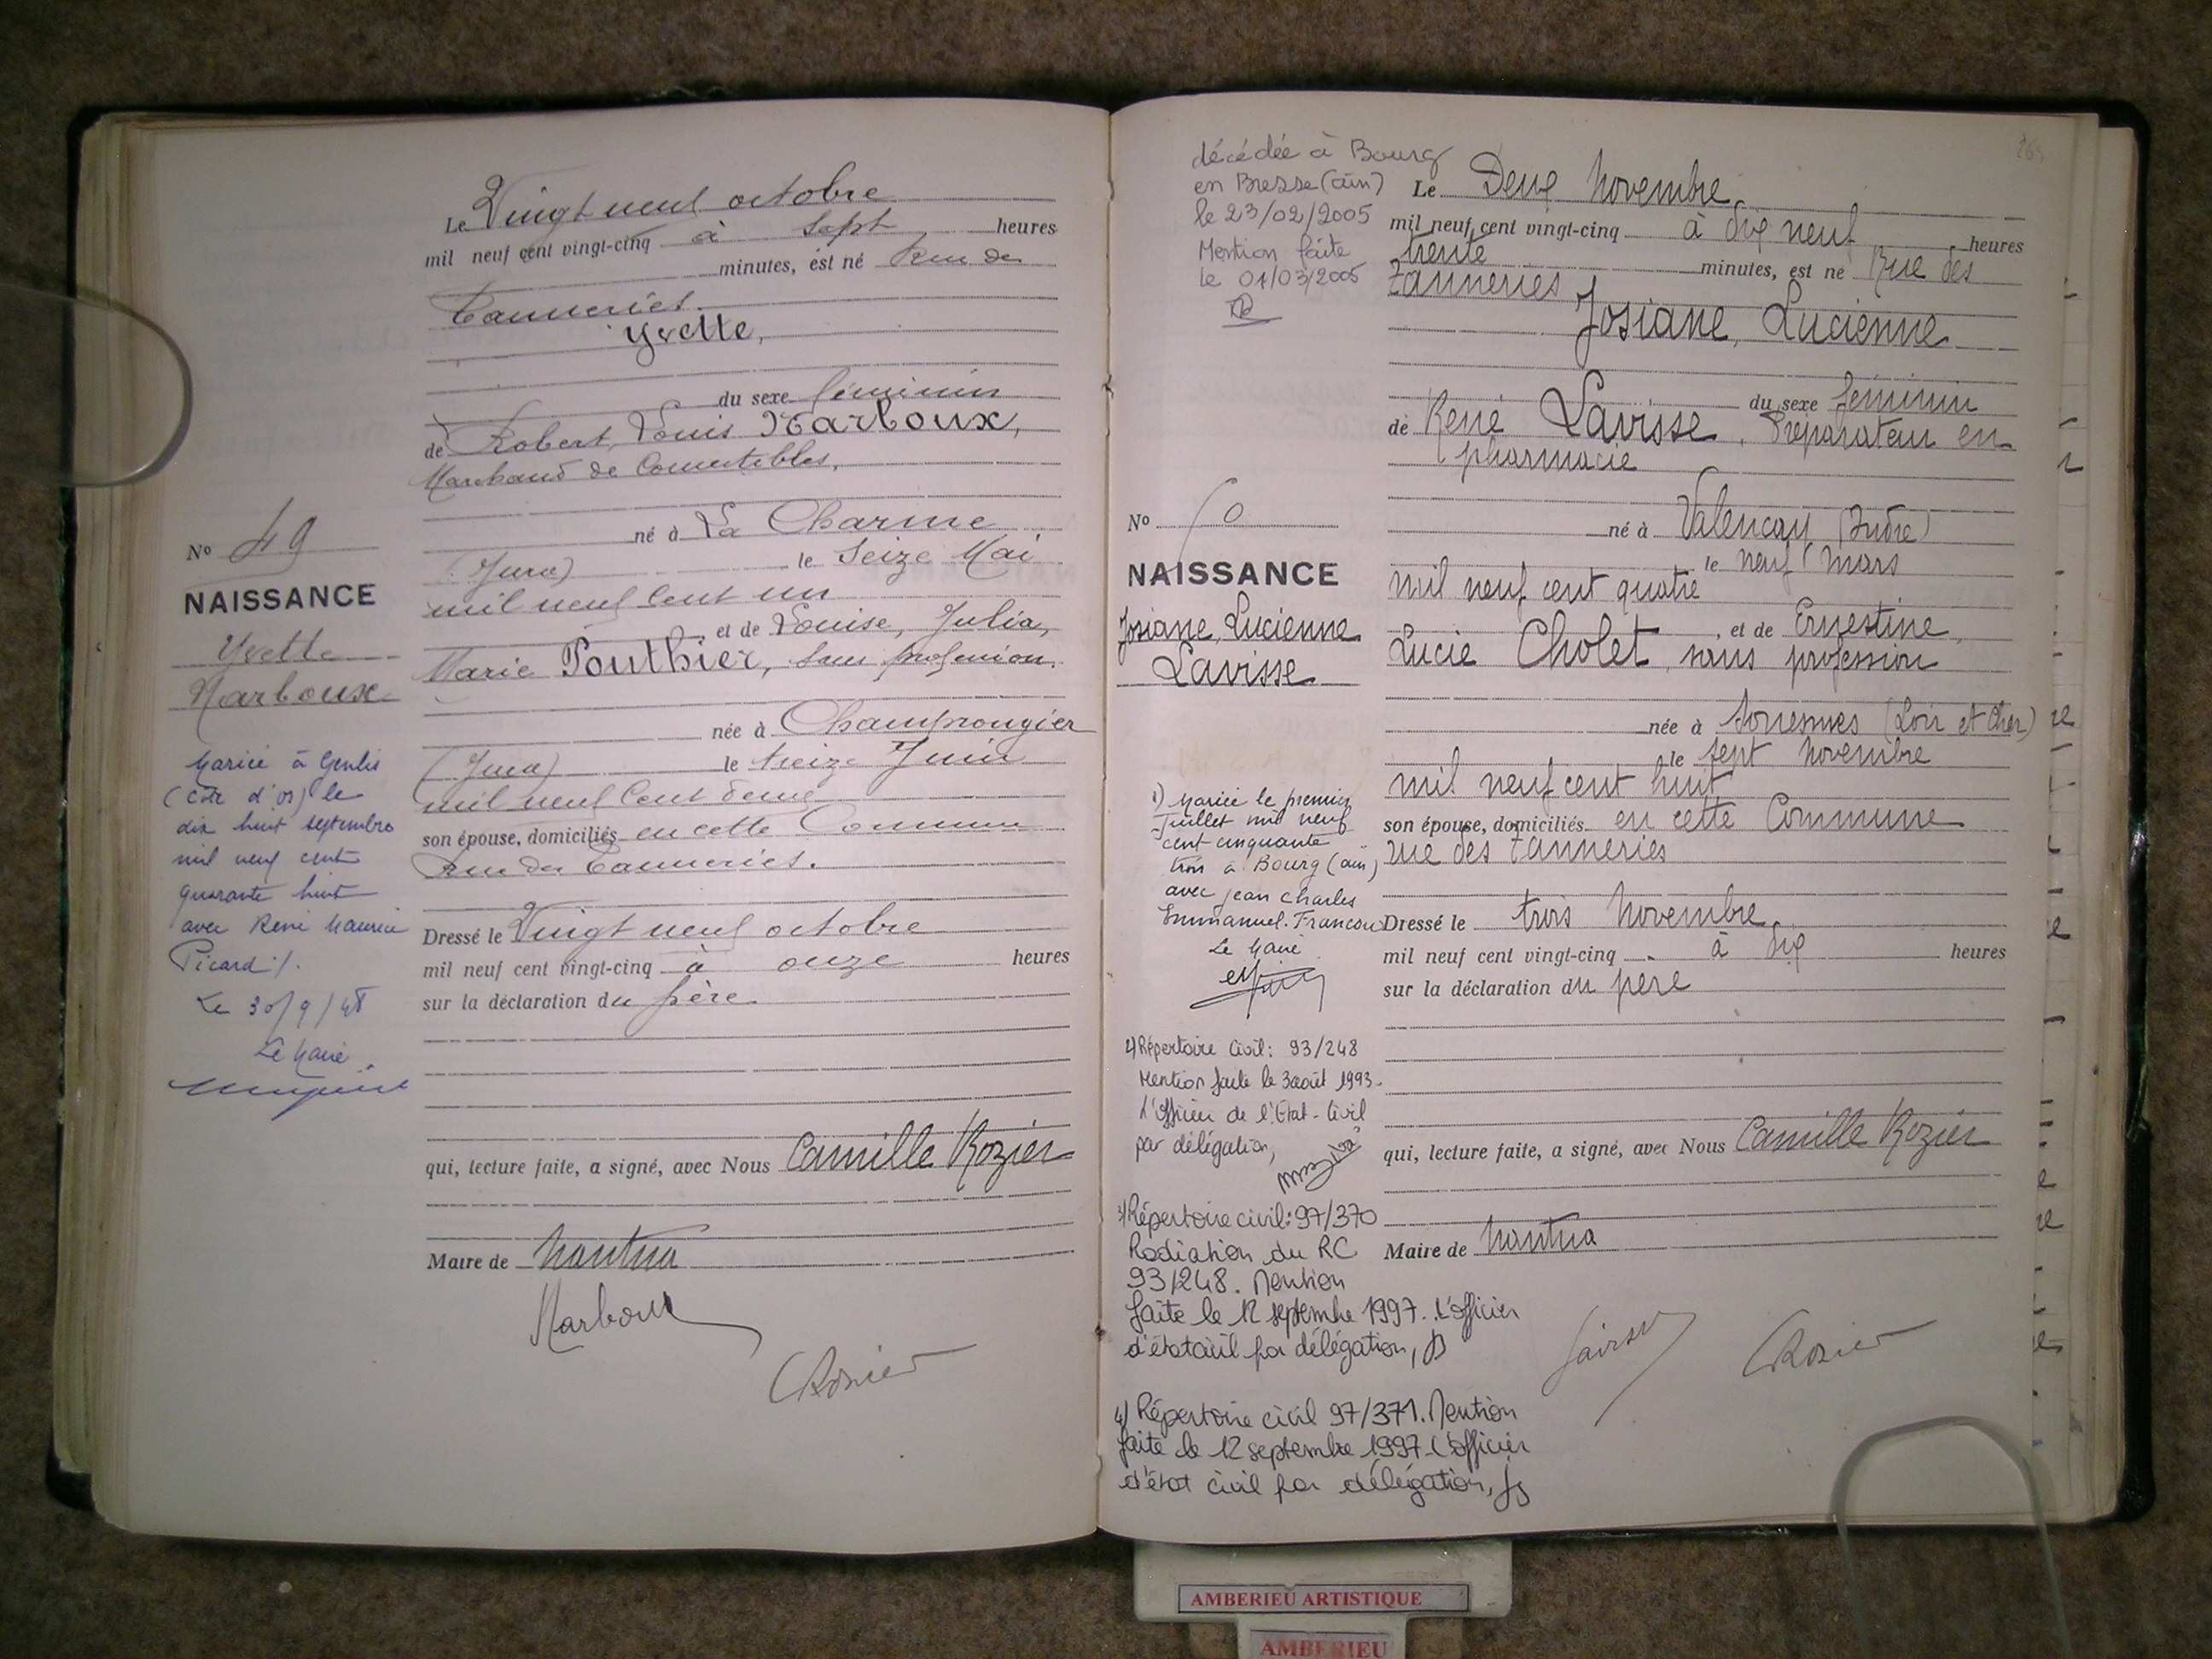 Le Vingt neuf octobre
mil neuf cent vingt-cinq à sept heures
minutes, est né Rue des
Tanneries.
Yvette,
du sexe féminin
de Robert, Louis Narboux,
Marchand de Comestibles,
né à La Charme
(Jura) le Seize Mai
mil neuf cent un
et de Louise, Julia,
Marie Pouthier, sans profession.
née à Champrougier
(Jura) le treize Juin
mil neuf cent deux
son épouse, domiciliés en cette Commune
Rue des Tanneries.
Dressé le Vingt neuf octobre
mil neuf cent vingt-cinq à onze heures
sur la déclaration du père
qui, lecture faite, a signé, avec Nous Camille Rozier
Maire de Nantua
Narboux
CRozier
No 49
NAISSANCE
Yvette
Narboux
Mariée à Genlis
(Côte d'or) le
dix huit septembre
mil neuf cent
quarante huit
avec René Maurice
Picard ./.
Le 30/9/48
Le Maire
décédée à Bourg
en Bresse (ain)
le 23/02/2005
Mention faite
le 01/03/2005
Le Deux Novembre
mil neuf cent vingt-cinq à dix neuf heures
trente minutes, est né Rue des
Tanneries
Josiane, Lucienne
du sexe féminin
de René Lavisse, Préparateur en
pharmacie
né à Valencay (Indre)
le neuf Mars
mil neuf cent quatre
, et de Ernestine,
Lucie Cholet, sans profession
née à (Loir et Cher)
le sept Novembre
mil neuf cent huit
son épouse, domiciliés en cette Commune
rue des Tanneries
Dressé le trois Novembre
mil neuf cent vingt-cinq à dix heures
sur la déclaration du père
qui, lecture faite, a signé, avec Nous Camille Rozier
Maire de Nantua
CRozier
No 50
NAISSANCE
Josiane, Lucienne
Lavisse
1) Mariée le premier
Juillet mil neuf
cent cinquante
trois à Bourg (ain)
avec Jean Charles
Emmanuel Francou
Le Maire
2) Répertoire Civil: 93/248
Mention faite le 3 août 1993.
L'Officier de l'Etat-Civil
par délégation,
3) Répertoire civil: 97/370
Radiation du RC
93/248. Mention
faite le 12 septembre 1997. L'officier
d'état civil par délégation,
4) Répertoire civil 97/371. Mention
faite le 12 septembre 1997. L'officier
d'état civil par délégation,
AMBERIEU ARTISTIQUE
AMBERIEU